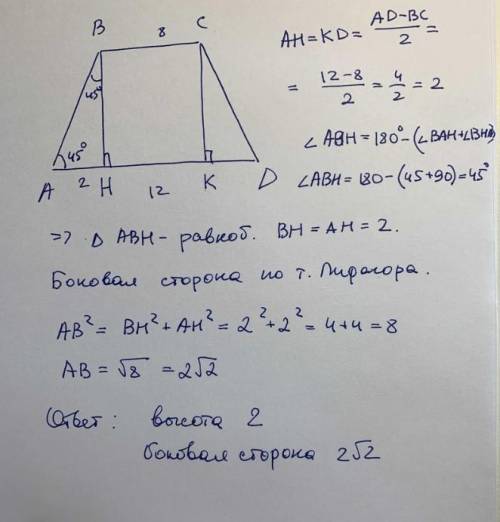 B 8 C
AH = KD = AD-BC / 2 =
= 12-8 / 2 = 4/2 = 2
45°
∠ABH = 180° - (∠BAH+∠BHA)
45°
A 2 H 12 K D
∠ABH = 180 - (45+90) = 45°
=> △ ABH - равноб. BH = AH = 2.
Боковая сторона по т. Пифагора.
AB² = BH² + AH² = 2² + 2² = 4+4 = 8
AB = √8 = 2√2
Ответ: высота 2
боковая сторона 2√2